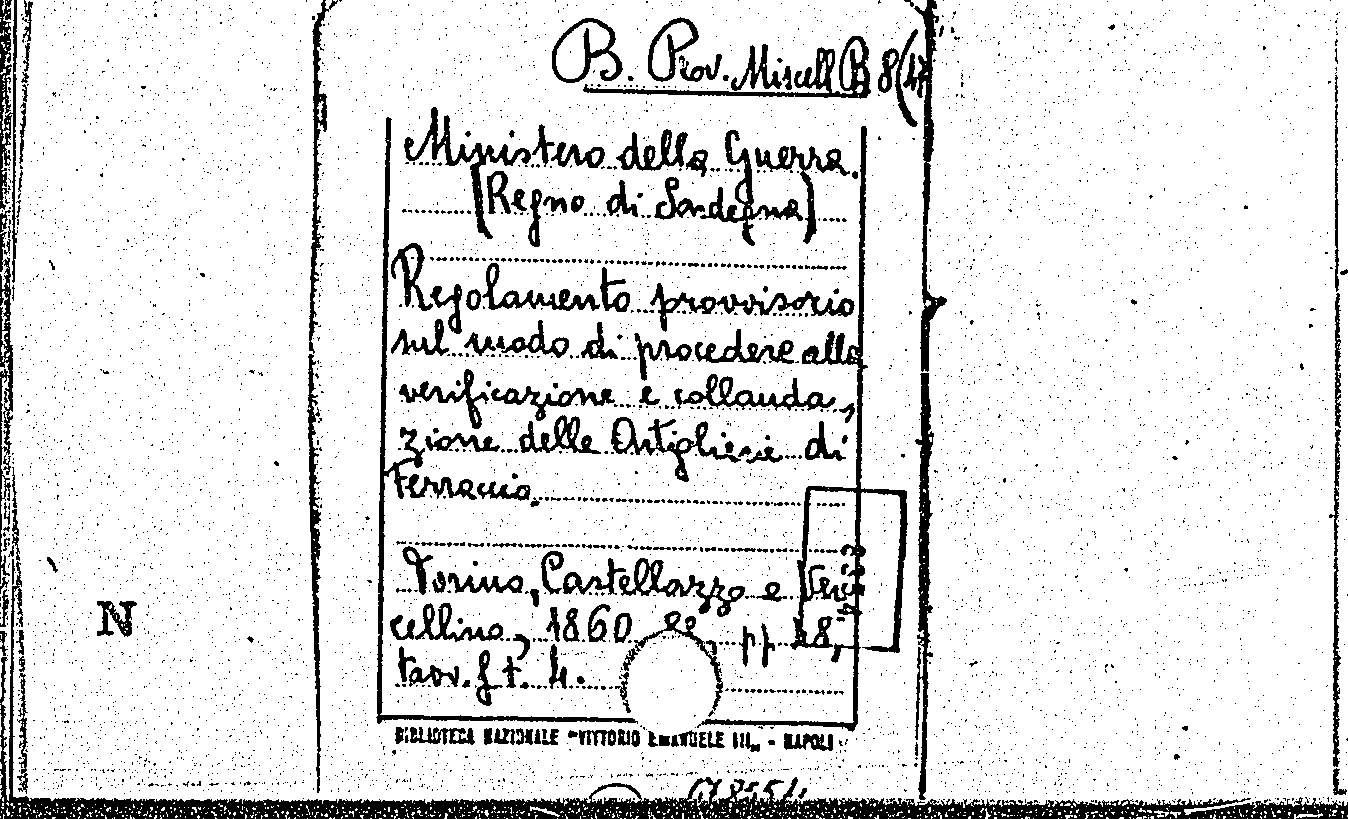 B. Prov. Miscell B 8(47
Ministero della Guerra.
(Regno di Sardegna)
Regolamento provvisorio
sul modo di procedere alla
verificazione e collauda,
zione delle Artiglierie di
Ferraccio.
Torino, Castellazzo e Ver
cellino, 1860 8º, pp 18,
tavv. f. t. 4.
N
BIBLIOTECA NAZIONALE "VITTORIO EMANUELE III„ - NAPOLI